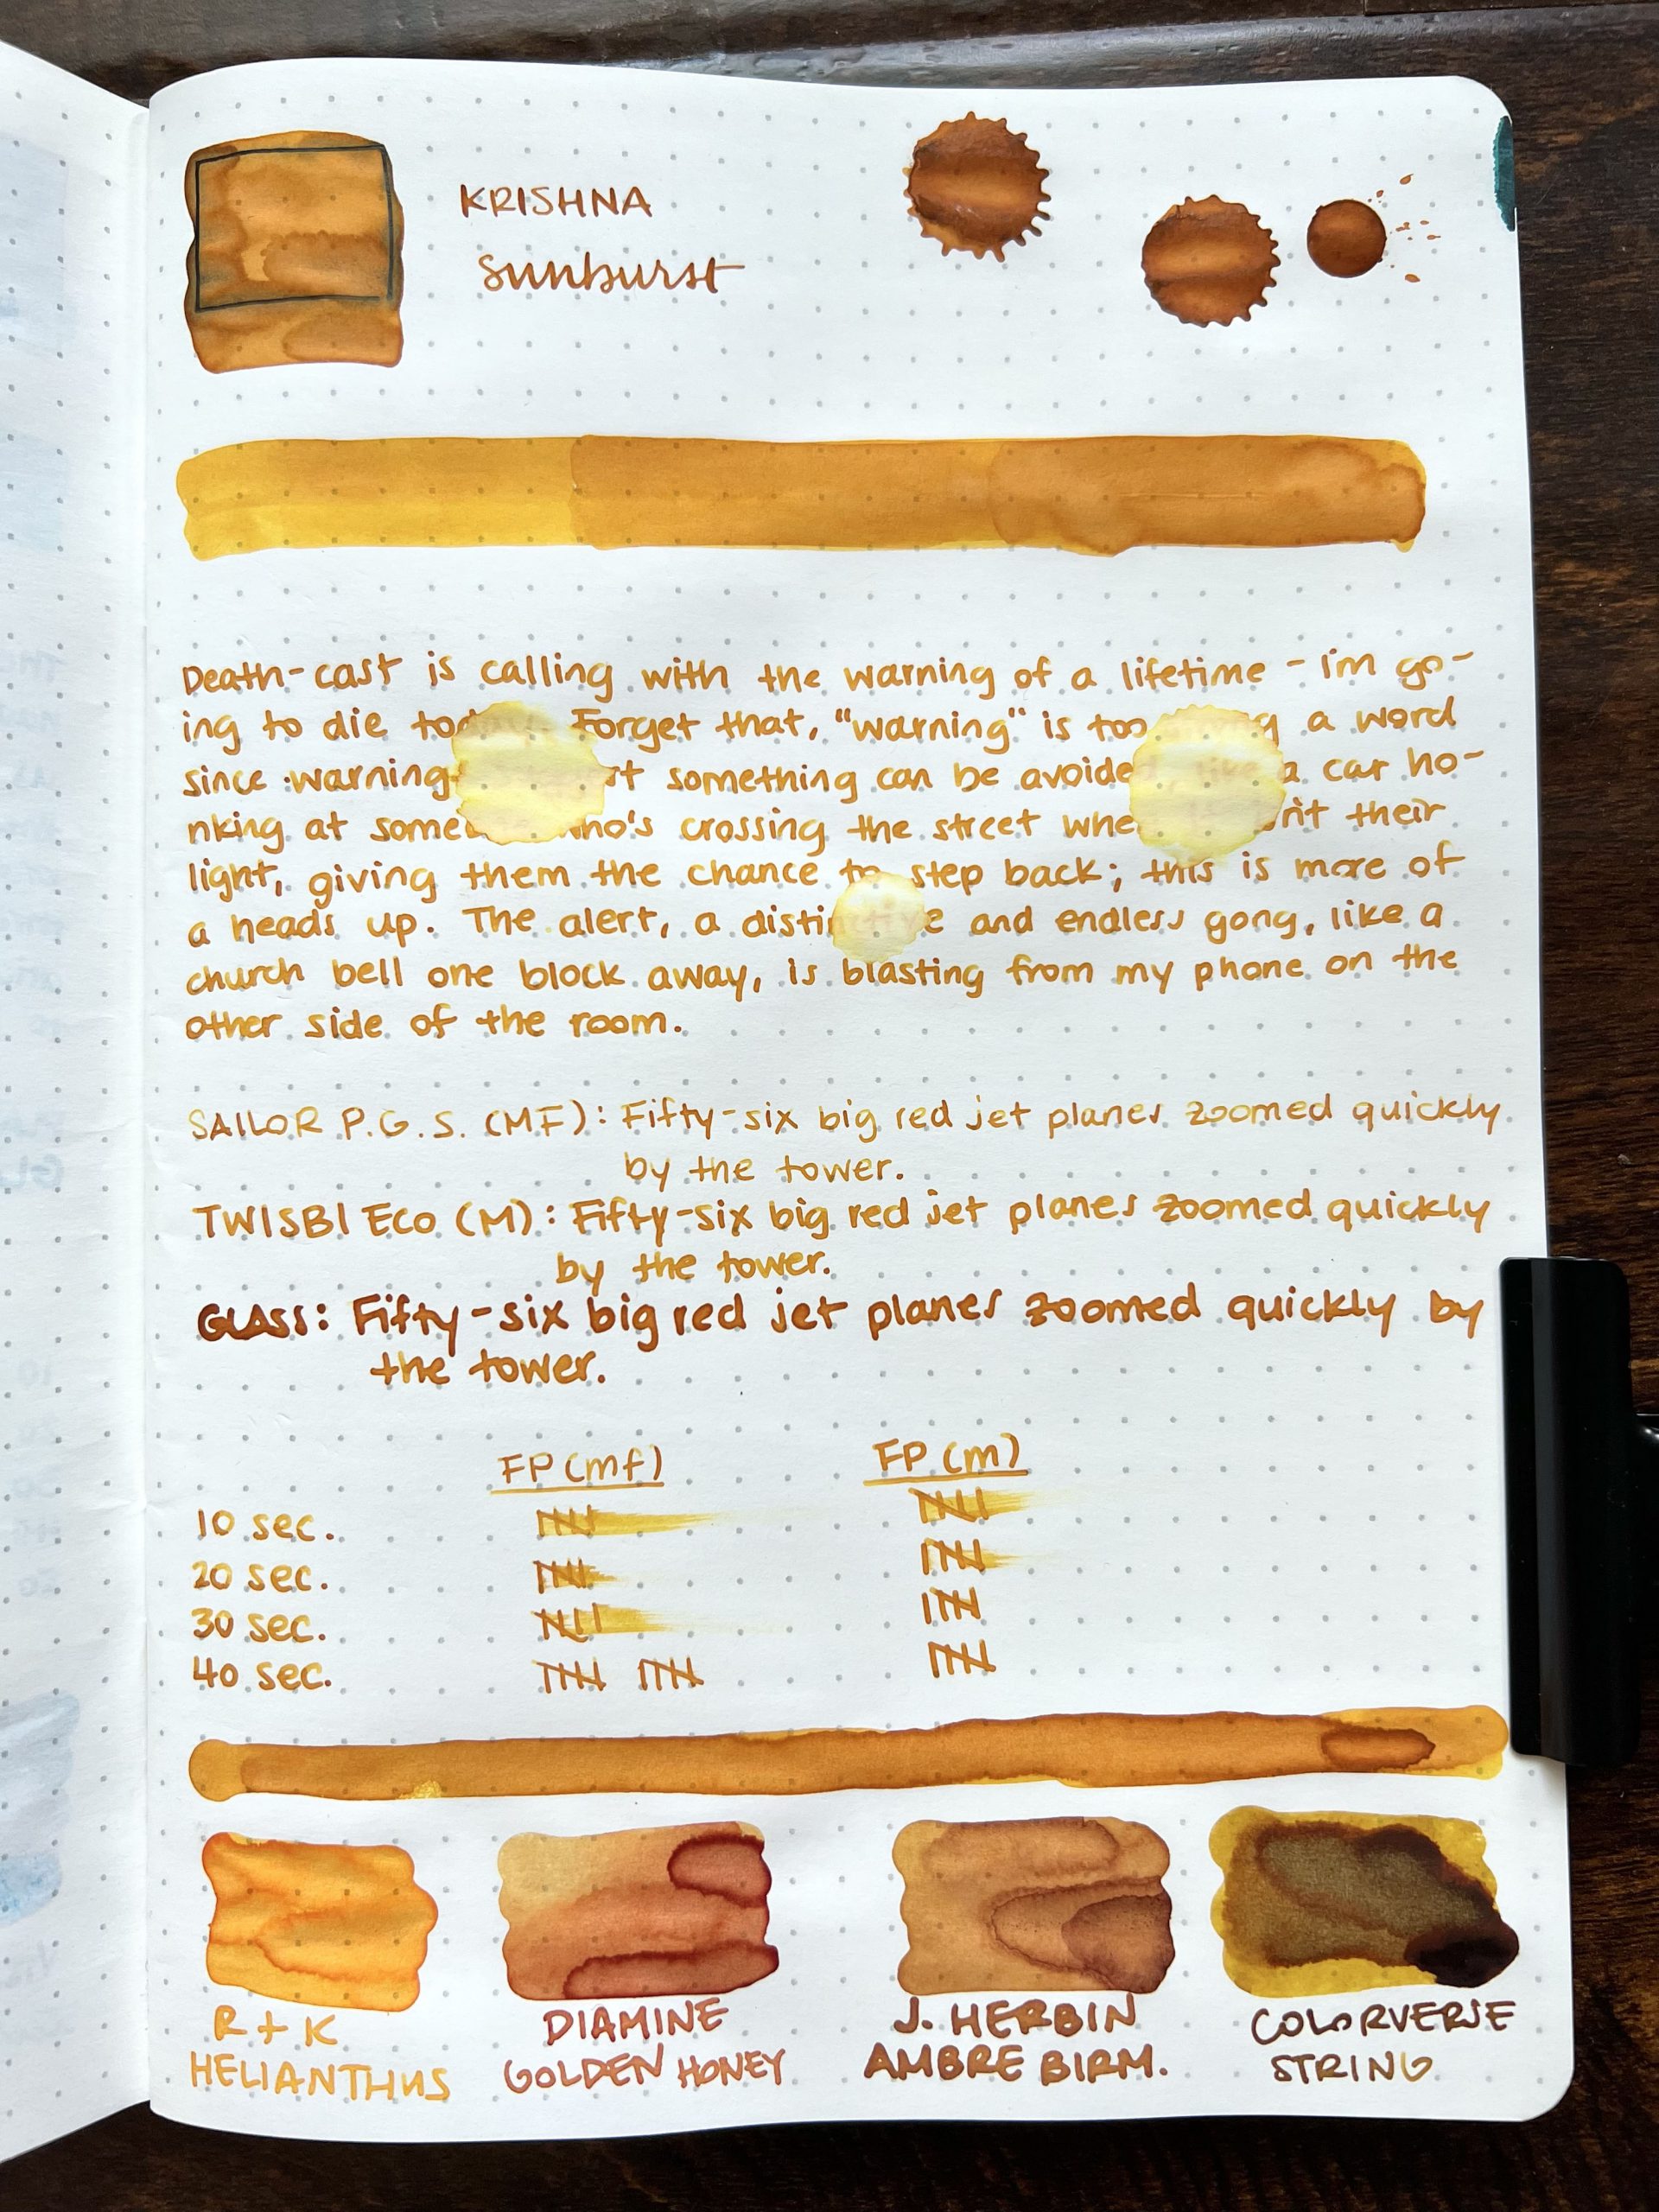 KRISHNA
sunburst
Death-cast is calling with the warning of a lifetime - i'm go-
ing to die Forget that, "warning" is too a word
since warning something can be avoided a car ho-
nking at who's crossing the street their
light, giving them the chance to step back; this is more of
a heads up. The alert, a distinctive and endless gong, like a
church bell one block away, is blasting from my phone on the
other side of the room.
SAILOR P.G.S. (MF): Fifty-six big red jet planes zoomed quickly
by the tower.
TWISBI ECO (M): Fifty-six big red jet planes zoomed quickly
by the tower.
GLASS: Fifty-six big red jet planes zoomed quickly by
the tower.
FP (mf) FP (m)
10 sec.
20 sec.
30 sec.
40 sec.
R + K DIAMINE J. HERBIN COLORVERSE
HELIANTHUS GOLDEN HONEY AMBRE BIRM. STRING